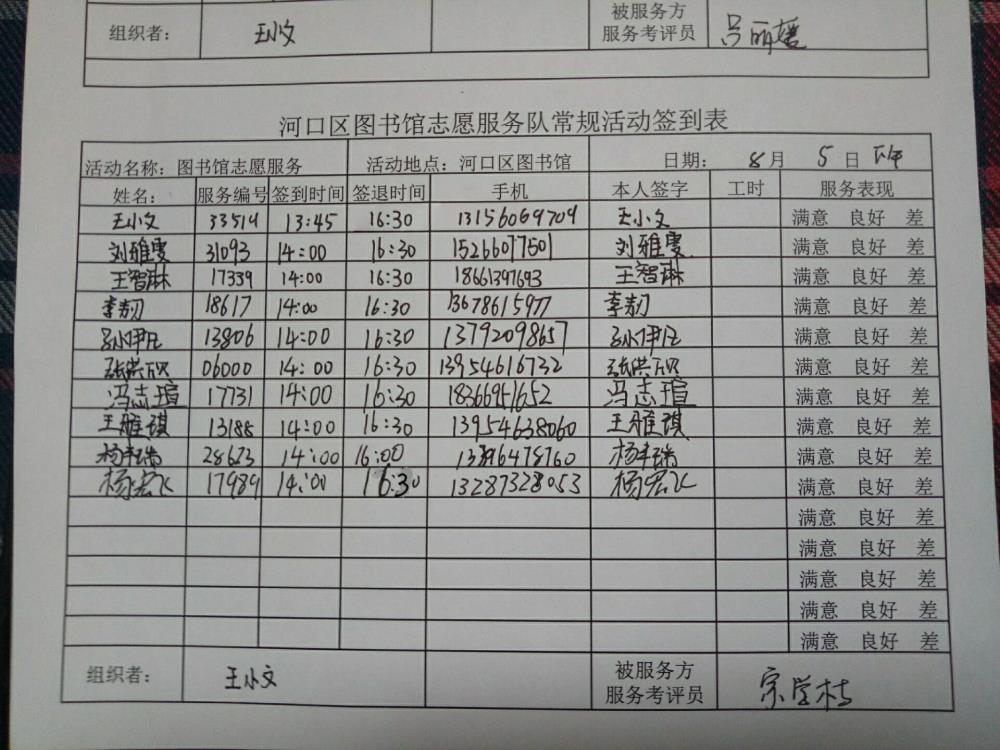 组织者： 王小文 被服务方 服务考评员 吕丽媛
河口区图书馆志愿服务队常规活动签到表
活动名称：图书馆志愿服务 活动地点：河口区图书馆 日期： 8月 5日 下午
姓名： 服务编号 签到时间 签退时间 手机 本人签字 工时 服务表现
王小文 33514 13:45 16:30 13156069709 王小文 满意 良好 差
刘雅雯 31093 14:00 16:30 15266077501 刘雅雯 满意 良好 差
王智琳 17339 14:00 16:30 18661397693 王智琳 满意 良好 差
李 18617 14:00 16:30 13678615977 李 满意 良好 差
孙伊 13806 14:00 16:30 13792098657 孙伊 满意 良好 差
张洪欣 06000 14:00 16:30 13954616732 张洪欣 满意 良好 差
冯志瑄 17731 14:00 16:30 18366951652 冯志瑄 满意 良好 差
王雅琪 13188 14:00 16:30 13954638060 王雅琪 满意 良好 差
杨瑞 28623 14:00 16:00 满意 良好 差
杨宏飞 17989 14:00 16:30 13287328053 杨宏飞 满意 良好 差
满意 良好 差
满意 良好 差
满意 良好 差
满意 良好 差
满意 良好 差
组织者： 王小文 被服务方 服务考评员 宗学